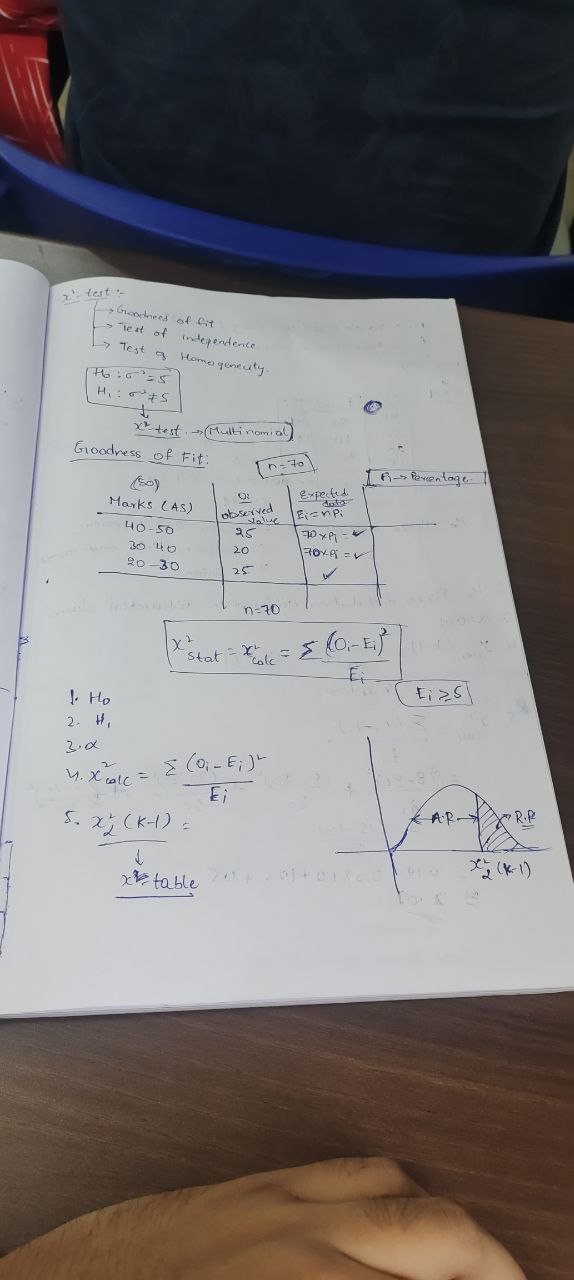 x²-test :-
→ Goodness of fit
→ Test of independence
→ Test of Homogenecity.
H₀ : σ² = 5
H₁ : σ² ≠ 5
↓
x²-test → Multinomial
Goodness of Fit:
n=70
Pi → Percentage.
(50)
Marks (AS) Oi observed value Expected data Ei = nPi
40-50 25 70×Pi = ✓
30-40 20 70×Pi = ✓
20-30 25 ✓
n=70
x²stat = x²calc = Σ (Oi - Ei)² / Ei
Ei ≥ 5
1. H₀
2. H₁
3. α
4. x²calc = Σ (Oi - Ei)² / Ei
5. x²₂ (K-1) =
↓
x²-table
A.R. R.R
x²₂ (K-1)